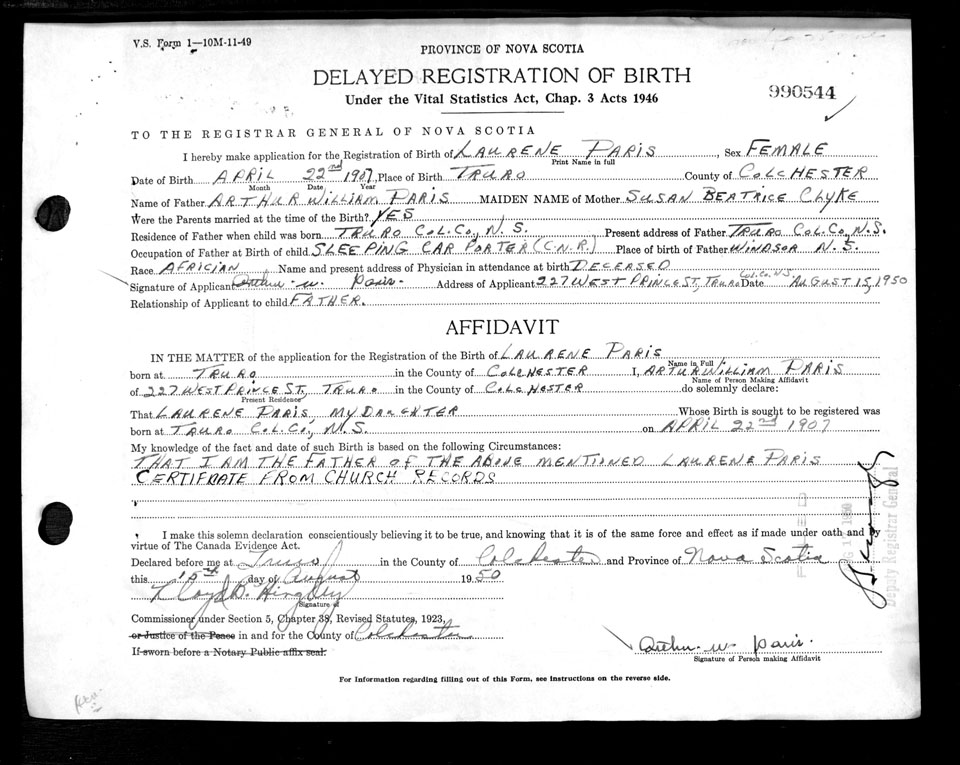 V.S. Form 1—10M-11-49
PROVINCE OF NOVA SCOTIA
DELAYED REGISTRATION OF BIRTH
Under the Vital Statistics Act, Chap. 3 Acts 1946
990544
TO THE REGISTRAR GENERAL OF NOVA SCOTIA
I hereby make application for the Registration of Birth of LAURENE PARIS, Sex FEMALE
Print Name in full
Date of Birth APRIL 22nd 1907, Place of Birth TRURO County of COLCHESTER
Month Date Year
Name of Father ARTHUR WILLIAM PARIS MAIDEN NAME of Mother SUSAN BEATRICE CLYKE
Were the Parents married at the time of the Birth? YES
Residence of Father when child was born TRURO COL. CO, N. S. Present address of Father TRURO COL. CO, N.S.
Occupation of Father at Birth of child SLEEPING CAR PORTER (C.N.R.) Place of birth of Father WINDSOR N. S.
Race AFRICIAN Name and present address of Physician in attendance at birth DECEASED
Signature of Applicant Arthur W. Paris. Address of Applicant 227 WEST PRINCE ST, TRURO Col. Co. N.S. Date AUGUST 15, 1950
Relationship of Applicant to child FATHER.
AFFIDAVIT
IN THE MATTER of the application for the Registration of the Birth of LAURENE PARIS
Name in Full
born at TRURO in the County of COLCHESTER I, ARTUR WILLIAM PARIS
Name of Person Making Affidavit
of 227 WEST PRINCE ST, TRURO in the County of COLCHESTER do solemnly declare:
Present Residence
That LAURENE PARIS MY DAUGHTER Whose Birth is sought to be registered was
born at TRURO COL. CO, N. S. on APRIL 22nd 1907
My knowledge of the fact and date of such Birth is based on the following Circumstances:
THAT I AM THE FATHER OF THE ABOVE MENTIONED LAURENE PARIS
CERTIFICATE FROM CHURCH RECORDS
I make this solemn declaration conscientiously believing it to be true, and knowing that it is of the same force and effect as if made under oath and by
virtue of The Canada Evidence Act.
Declared before me at Truro in the County of Colchester and Province of Nova Scotia
this 15th day of August 1950
Lloyd B.
Signature of
Commissioner under Section 5, Chapter 38, Revised Statutes, 1923,
or Justice of the Peace in and for the County of Colchester
If sworn before a Notary Public affix seal.
Arthur W. Paris.
Signature of Person making Affidavit
For Information regarding filling out of this Form, see instructions on the reverse side.
Deputy Registrar General